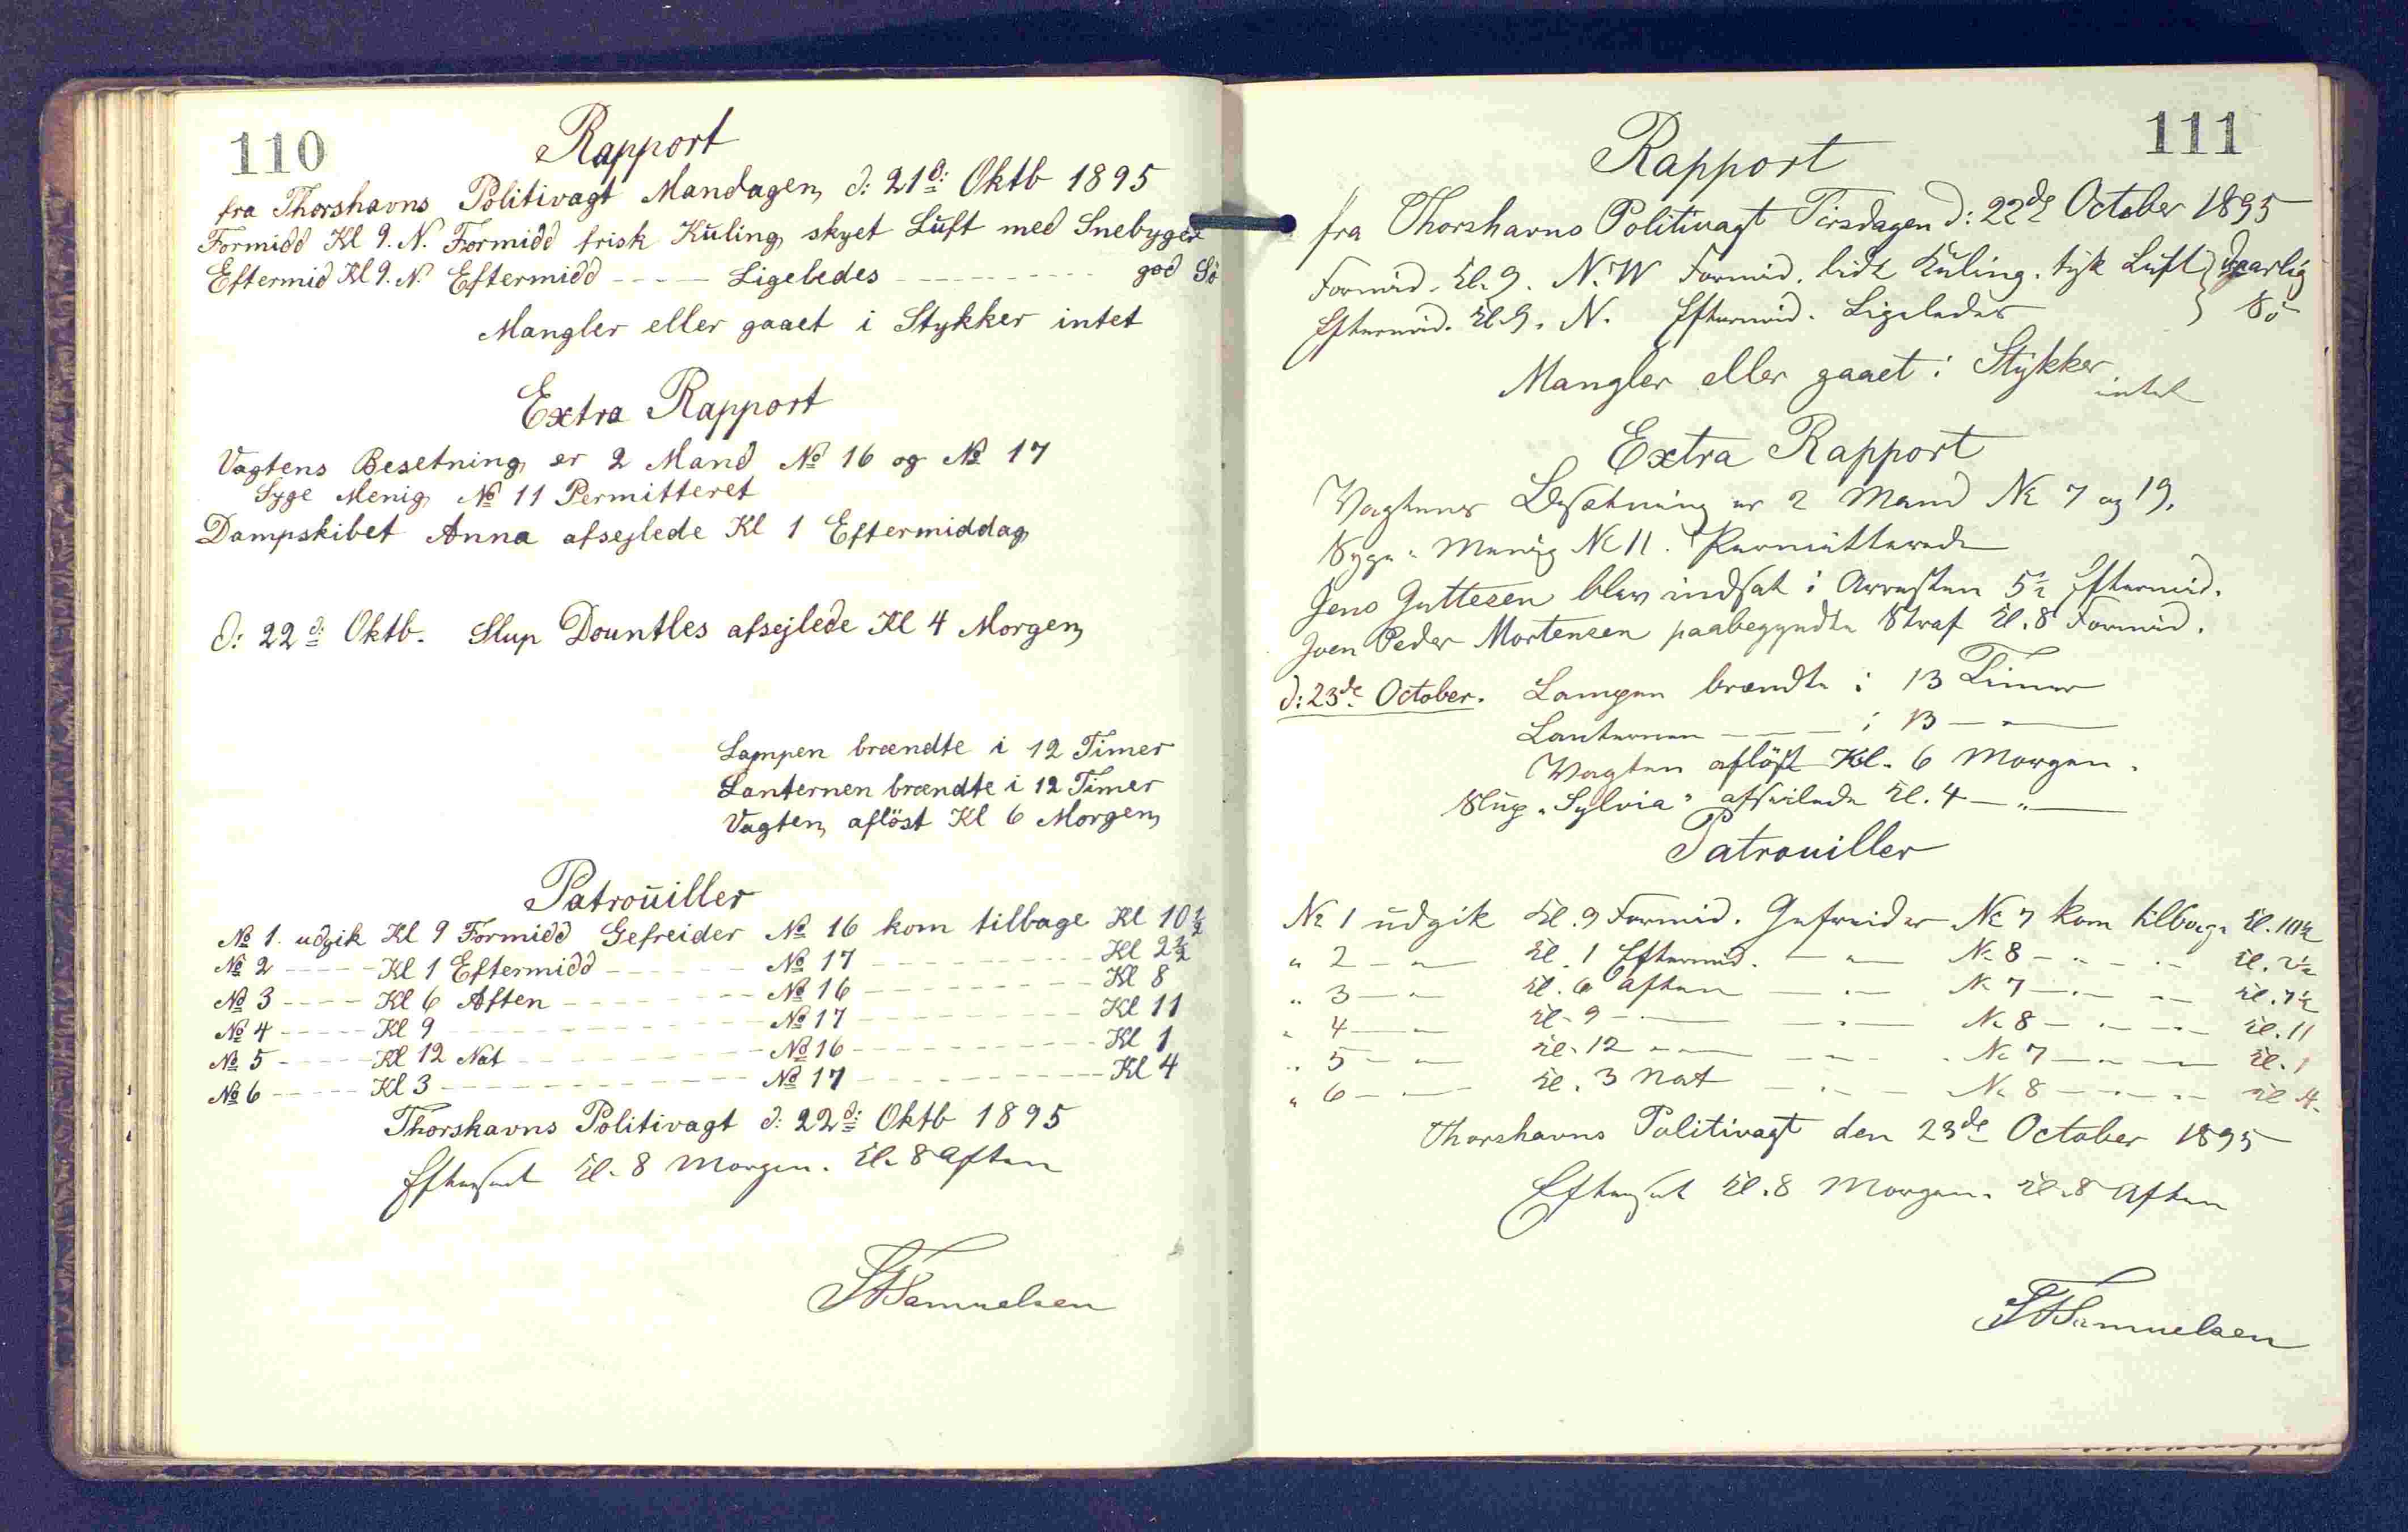 110
Rapport
fra Thorshavns Politivagt Mandagen d: 21d: Oktb 1895
Formidd Kl 9. N. Formidd frisk Kuling skyet Luft med Snebyger
Eftermid Kl 9. N. Eftermidd - - - - Ligeledes - - - - god Sö
Mangler eller gaaet i Stykker intet
Extra Rapport
Vagtens Besetning er 2 Mand No 16 og No 17
Syge Menig No 11 Permitteret
Dampskibet Anna afsejlede Kl 1 Eftermiddag
d: 22d: Oktb. Slup Dountles afsejlede Kl 4 Morgen
Lampen brændte i 12 Timer
Lanternen brændte i 12 Timer
Vagten aflöst Kl 6 Morgen
Patrouiller
No 1. udgik Kl 9 Formidd Gefreider No 16 kom tilbage Kl 10½
No 2 - - - - Kl 1 Eftermidd - - - - No 17 - - - - Kl 2½
No 3 - - - - Kl 6 Aften - - - - No 16 - - - - Kl 8
No 4 - - - - Kl 9 - - - - No 17 - - - - Kl 11
No 5 - - - - Kl 12 Nat - - - - No 16 - - - - Kl 1
No 6 - - - - Kl 3 - - - - No 17 - - - - Kl 4
Thorshavns Politivagt d: 22d: Oktb 1895
Efterset Kl. 8 Morgen. Kl. 8 Aften
Samuelsen
111
Rapport
fra Thorshavns Politivagt Tirsdagen d: 22de October 1895
Formid. Kl. 9. N.W Formid. lidt Kuling. tyk Luft } daarlig
Eftermid. Kl. 9. N. Eftermid. Ligeledes } Sö
Mangler eller gaaet i Stykker
intet
Extra Rapport
Vagtens Besætning er 2 Mand No 7 og 19.
Syge: Menig No 11. Permitterede
Jens Guttesen blev indsat i Arresten 5½ Eftermid.
Joen Peder Mortensen paabegyndte Straf Kl. 8 Formid.
d: 23de October. Lampen brændte i 13 Timer
Lanternen - - - i 13 - " -
Vagten aflöst Kl. 6 Morgen.
Slup "Sylvia" afseilede Kl. 4 - " -
Patrouiller
No 1 udgik Kl. 9 Formid. Gefreider No 7 kom tilbage Kl. 10½
" 2 - " - Kl. 1 Eftermid. - " - No 8 - " - " - Kl. 2½
" 3 - " - Kl. 6 Aften - " - No 7 - " - " - Kl. 7½
" 4 - " - Kl. 9 - " - - " - No 8 - " - " - Kl. 11
" 5 - " - Kl. 12 - " - - " - No 7 - " - " - Kl. 1
" 6 - " - Kl. 3 Nat - " - No 8 - " - " - Kl 4.
Thorshavns Politivagt den 23de October 1895
Efterset Kl. 8 Morgen. Kl. 8 Aften
Samuelsen